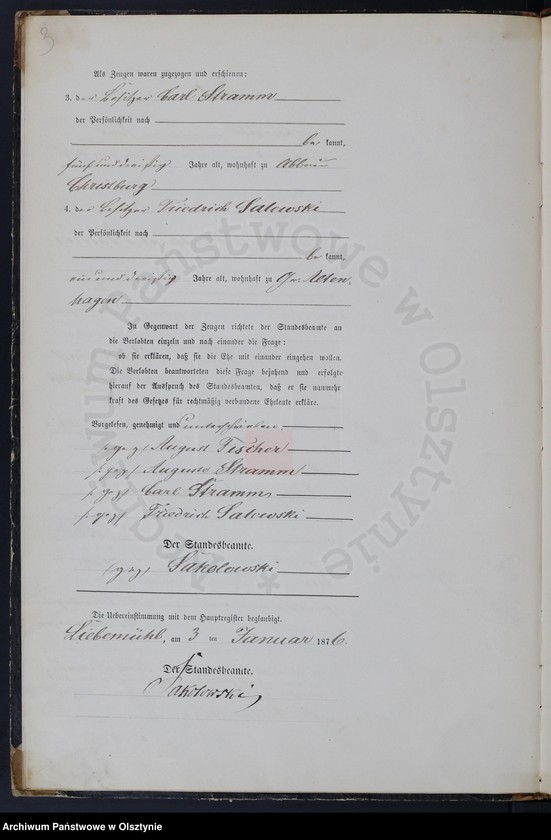 3
Als Zeugen waren zugezogen und erschienen:
3. der Besitzer Carl Stramm
der Persönlichkeit nach
be kannt,
fünf und dreißig Jahre alt, wohnhaft zu Abbau
Christburg
4. der Besitzer Friedrich Salewski
der Persönlichkeit nach
be kannt,
ein und dreißig Jahre alt, wohnhaft zu Gr. Alten.
hagen
In Gegenwart der Zeugen richtete der Standesbeamte an
die Verlobten einzeln und nach einander die Frage:
ob sie erklären, daß sie die Ehe mit einander eingehen wollen.
Die Verlobten beantworteten diese Frage bejahend und erfolgte
hierauf der Ausspruch des Standesbeamten, daß er sie nunmehr
kraft des Gesetzes für rechtmäßig verbundene Eheleute erkläre.
Vorgelesen, genehmigt und unterschrieben.
(gez) August Fischer
(gez) Auguste Stramm
(gez) Carl Stramm
(gez) Friedrich Salewski
Der Standesbeamte.
(gez) Sakolowski
Die Uebereinstimmung mit dem Hauptregister beglaubigt.
Liebemühl, am 3 ten Januar 1876.
Der Standesbeamte.
Sakolowski
Archiwum Państwowe w Olsztynie
* Archiwum Państwowe w Olsztynie